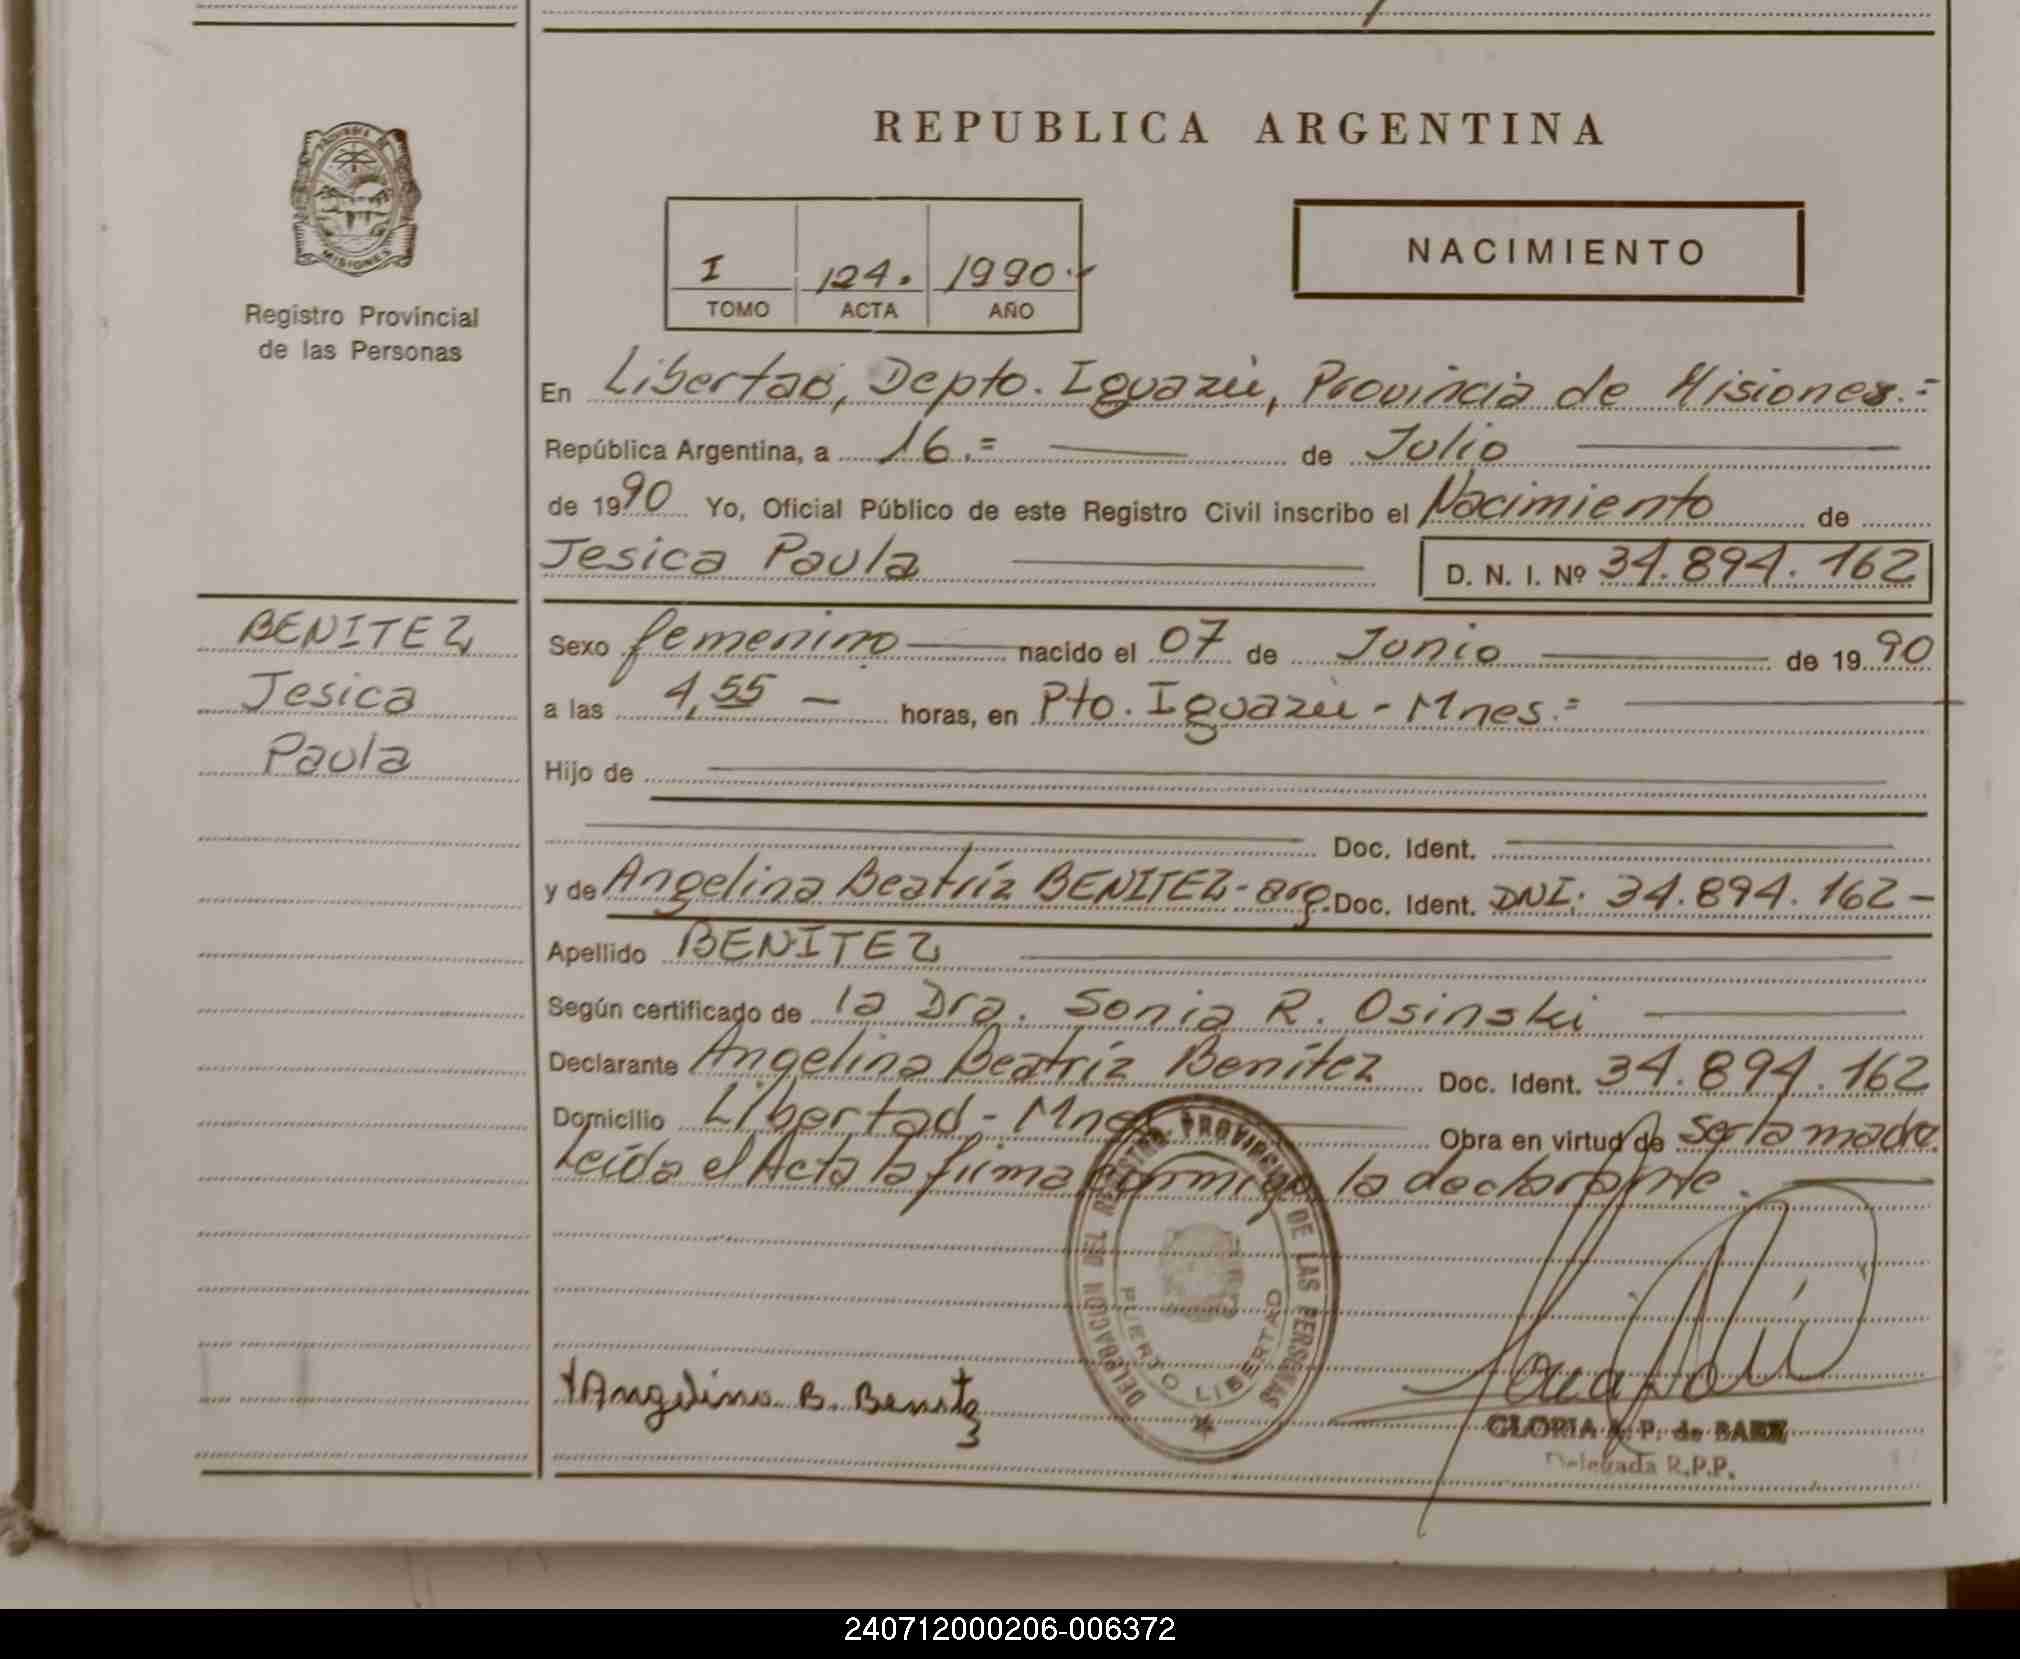 PROVINCIA DE
MISIONES
Registro Provincial
de las Personas
BENITEZ
Jesica
Paula
REPUBLICA ARGENTINA
I 124. 1990.-
TOMO ACTA AÑO
NACIMIENTO
En Libertad, Depto. Iguazú, Provincia de Misiones.=
República Argentina, a 16.= de Julio
de 1990 Yo, Oficial Público de este Registro Civil inscribo el Nacimiento de
Jesica Paula D. N. I. Nº 34.894.162
Sexo femenino nacido el 07 de Junio de 1990
a las 4,55 — horas, en Pto. Iguazú - Mnes.=
Hijo de
Doc. Ident.
y de Angelina Beatríz BENITEZ - arg. Doc. Ident. DNI: 34.894.162 -
Apellido BENITEZ
Según certificado de la Dra. Sonia R. Osinski
Declarante Angelina Beatríz Benítez Doc. Ident. 34.894.162
Domicilio Libertad - Mnes Obra en virtud de ser la madre
Leída el Acta la firma conmigo la declarante.
DELEGACION DEL REGISTRO PROVINCIAL DE LAS PERSONAS
PUERTO LIBERTAD
Angelina B. Benitez
GLORIA P. de BAEZ
Delegada R.P.P.
240712000206-006372